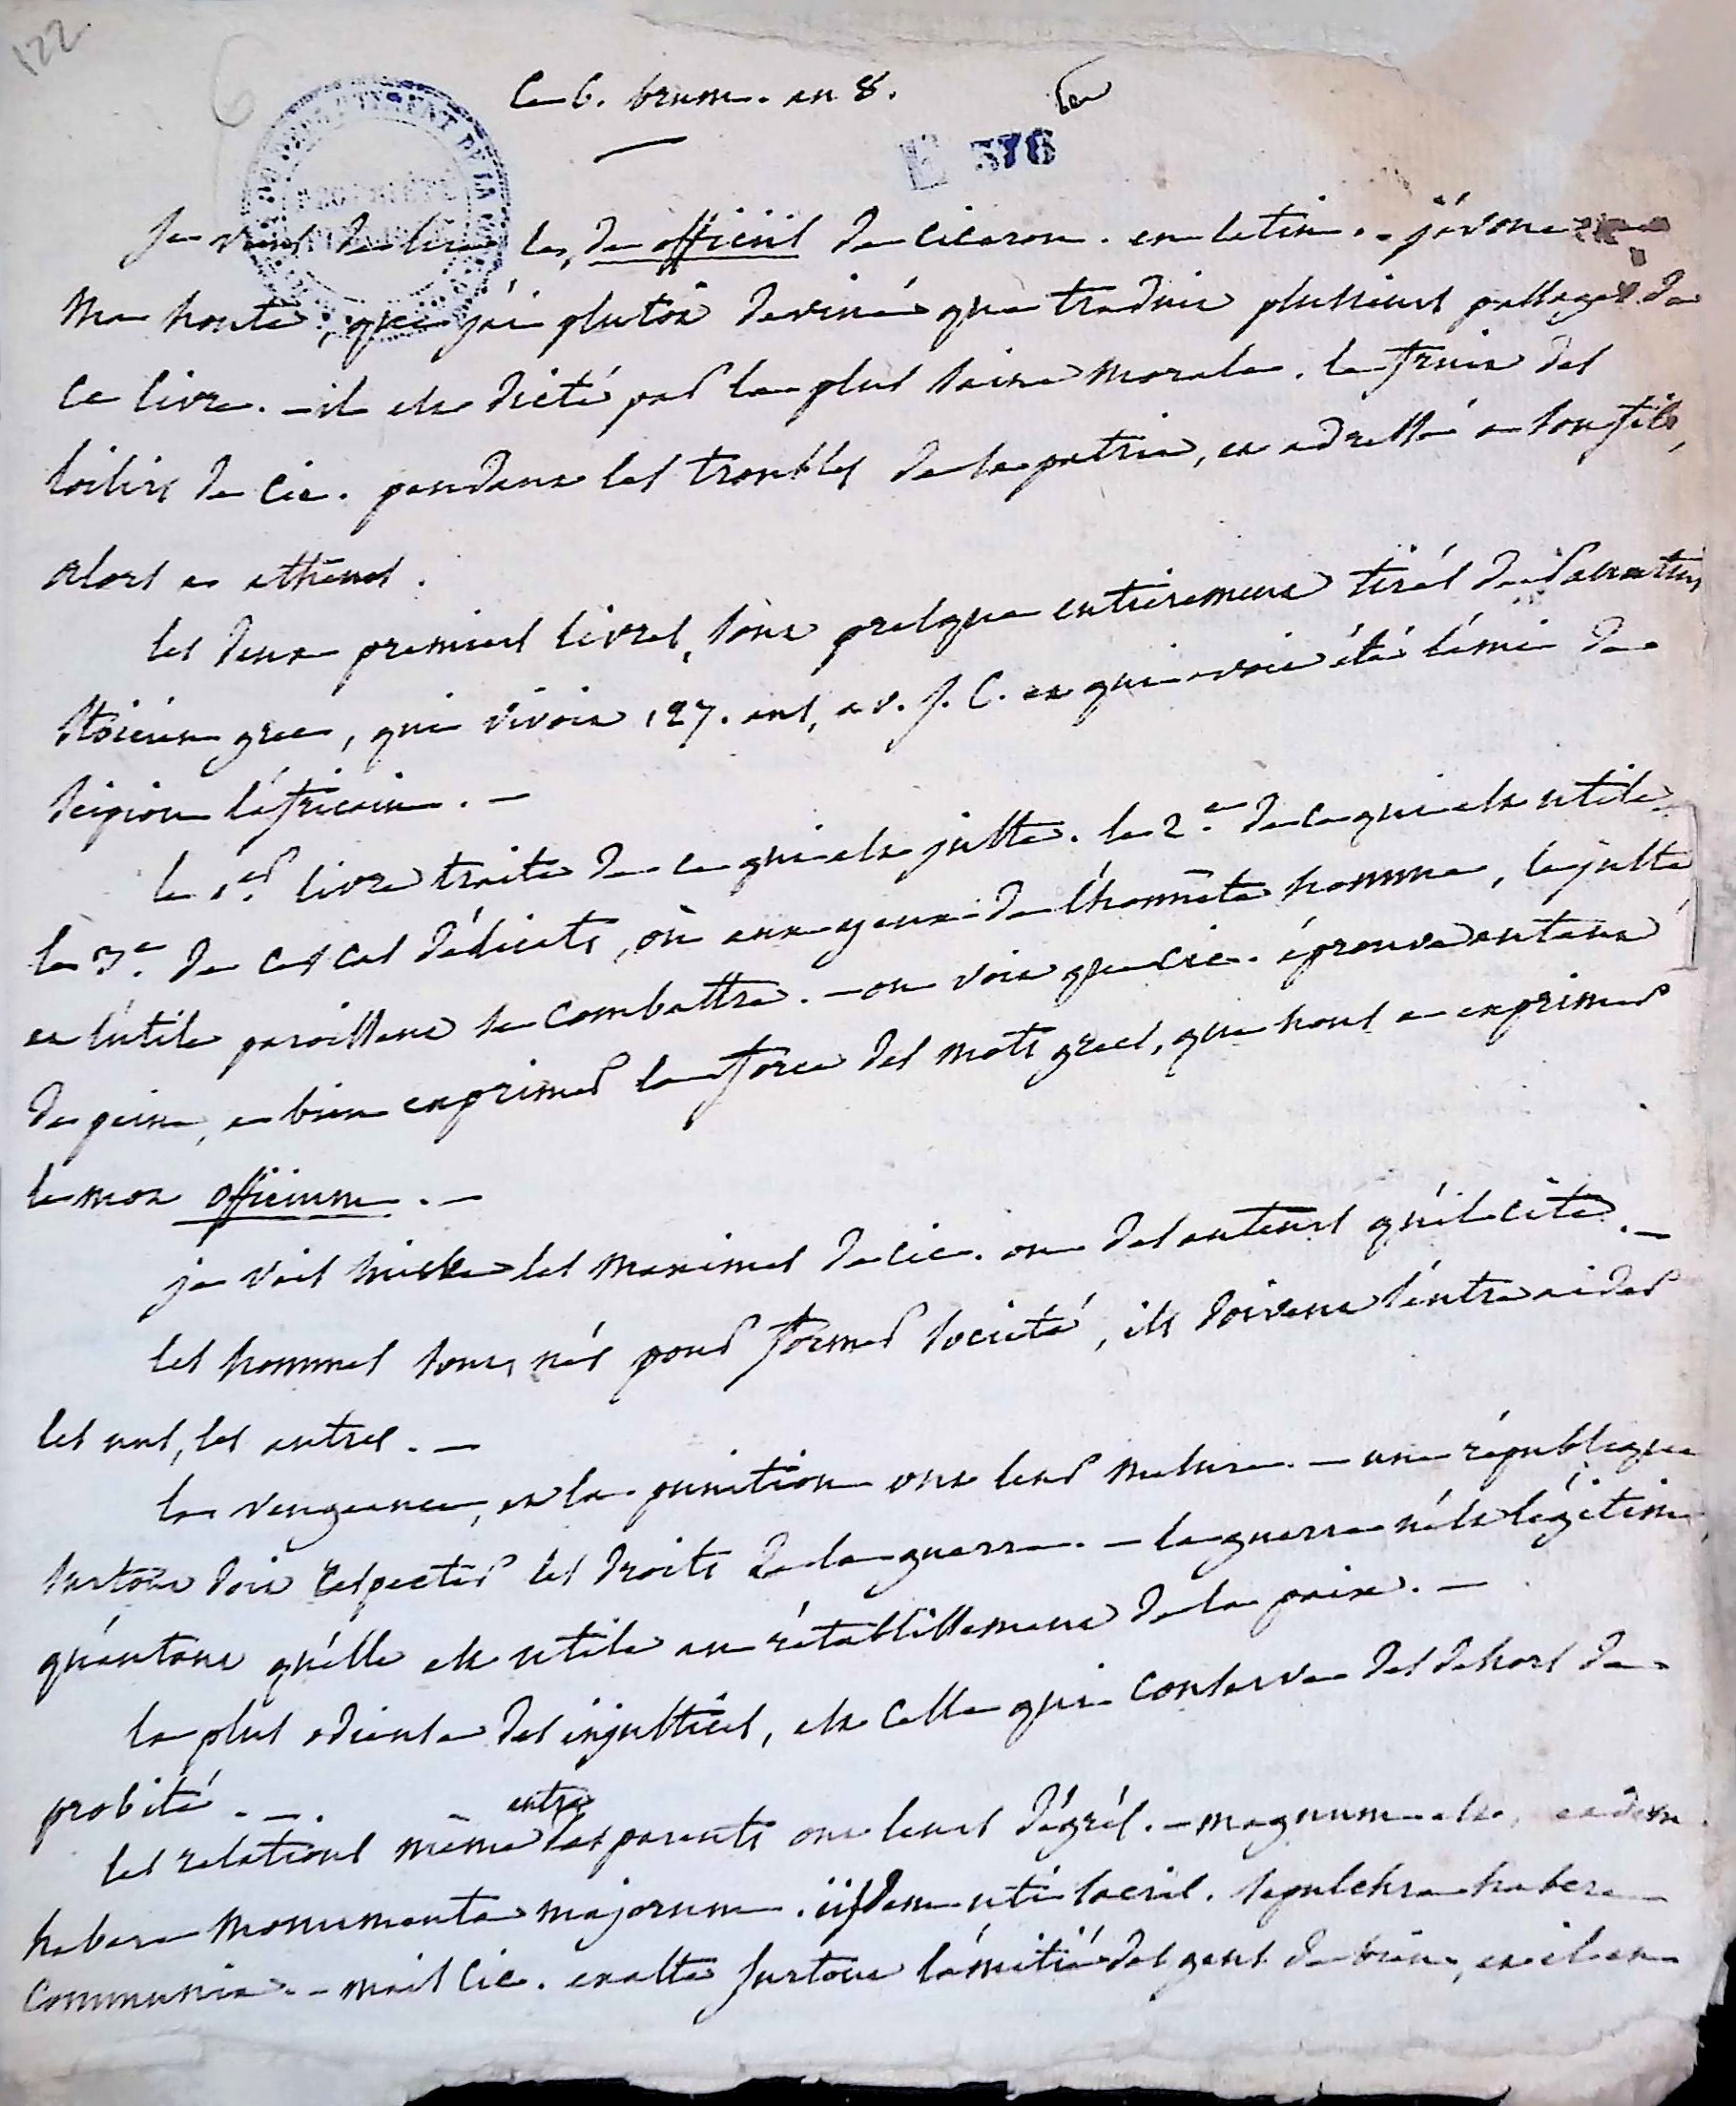 122
6
Le 6. brum. an 8.
E 376
Je viens de lire les, de officiis de ciceron. en latin. - j'avoue à
ma honte, que j'ai plutôt deviné que traduit plusieurs passages de
ce livre. - il est dicté par la plus saine morale. le fruit des
loisirs de Cic. pendant les troubles de la patrie, et adressé a son fils,
alors a athenes.
les deux premiers livres, sont presque entièrement tirés de Panaetius
stoicien grec, qui vivoit 127. ans, av. J. C. et qui avoit été l'ami de
Scipion l'africain. -
le 1er. livre traite de ce qui est juste. le 2.e de ce qui est utile
le 3.e de ces cas délicats, où aux yeux de l'honnête homme, le juste
et l'utile paroissent se combattre. - on voit que Cic. éprouve autant
de peine, a bien exprimer la force des mots grecs, que nous a exprimer
le mot officium. -
je vais suivre les maximes de Cic. ou des auteurs qu'il cite. -
les hommes sont, nés pour former société, ils doivent s'entre aider
les uns, les autres. -
la vengeance, et la punition ont leur mesure. - une république
surtout doit respecter les droits de la guerre. - la guerre n'est légitime,
qu'autant qu'elle est utile au rétablissement de la paix. -
la plus odieuse des injustices, est celle qui conserve des dehors de
probité. - .
les relations même entre les parents ont leurs dégrés. - magnum est, eadem
habere monumenta majorum. iisdem uti sacris. sepulchra habere
communia. - mais Cic. exalte surtout l'amitié des gens de bien, et il en